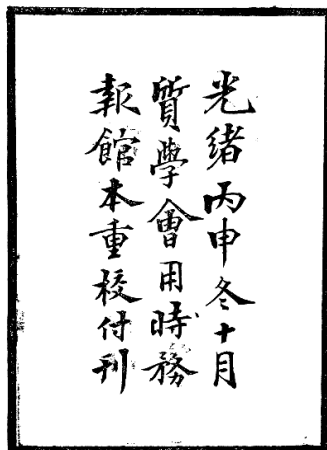 光緒丙申冬十月
質學會用時務
報館本重校付刊